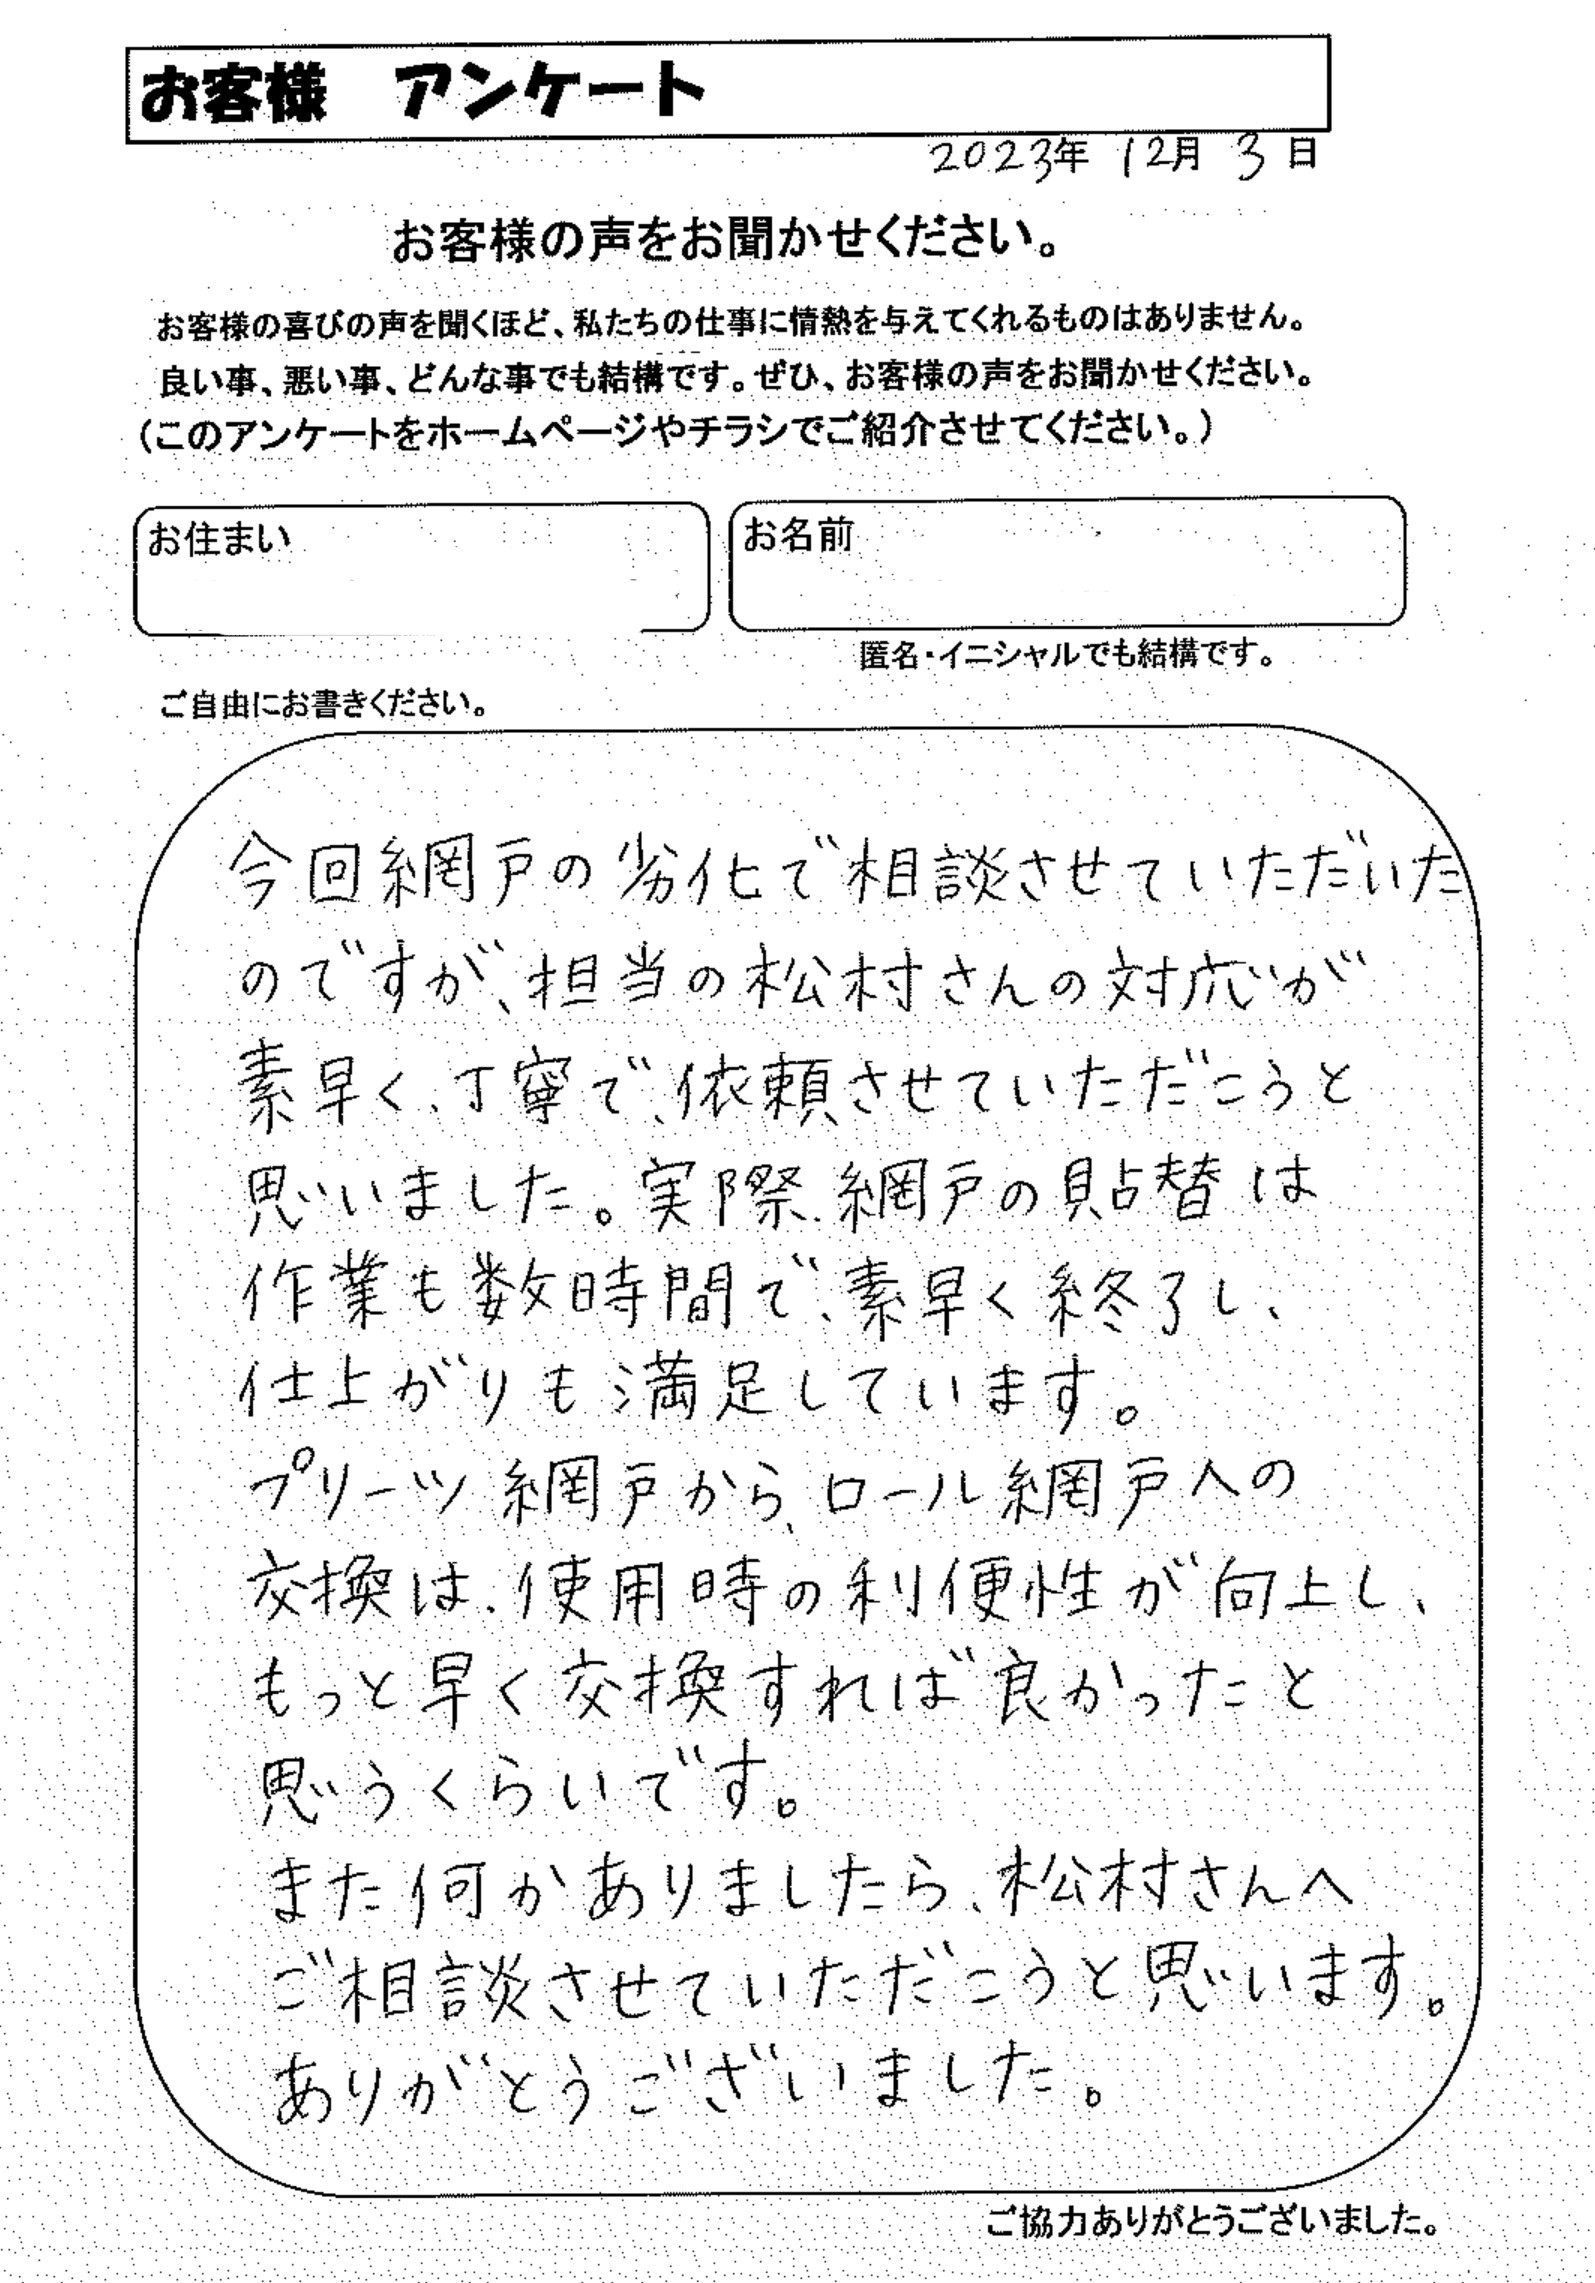 お客様　アンケート
2023年 12月 3日
お客様の声をお聞かせください。
お客様の喜びの声を聞くほど、私たちの仕事に情熱を与えてくれるものはありません。
良い事、悪い事、どんな事でも結構です。ぜひ、お客様の声をお聞かせください。
（このアンケートをホームページやチラシでご紹介させてください。）
お住まい
お名前
匿名・イニシャルでも結構です。
ご自由にお書きください。
今回網戸の劣化で相談させていただいた
のですが、担当の松村さんの対応が
素早く、丁寧で、依頼させていただこうと
思いました。実際、網戸の貼替は
作業も数時間で、素早く終了し、
仕上がりも満足しています。
プリーツ網戸から、ロール網戸への
交換は、使用時の利便性が向上し、
もっと早く交換すれば良かったと
思うくらいです。
また何かありましたら、松村さんへ
ご相談させていただこうと思います。
ありがとうございました。
ご協力ありがとうございました。